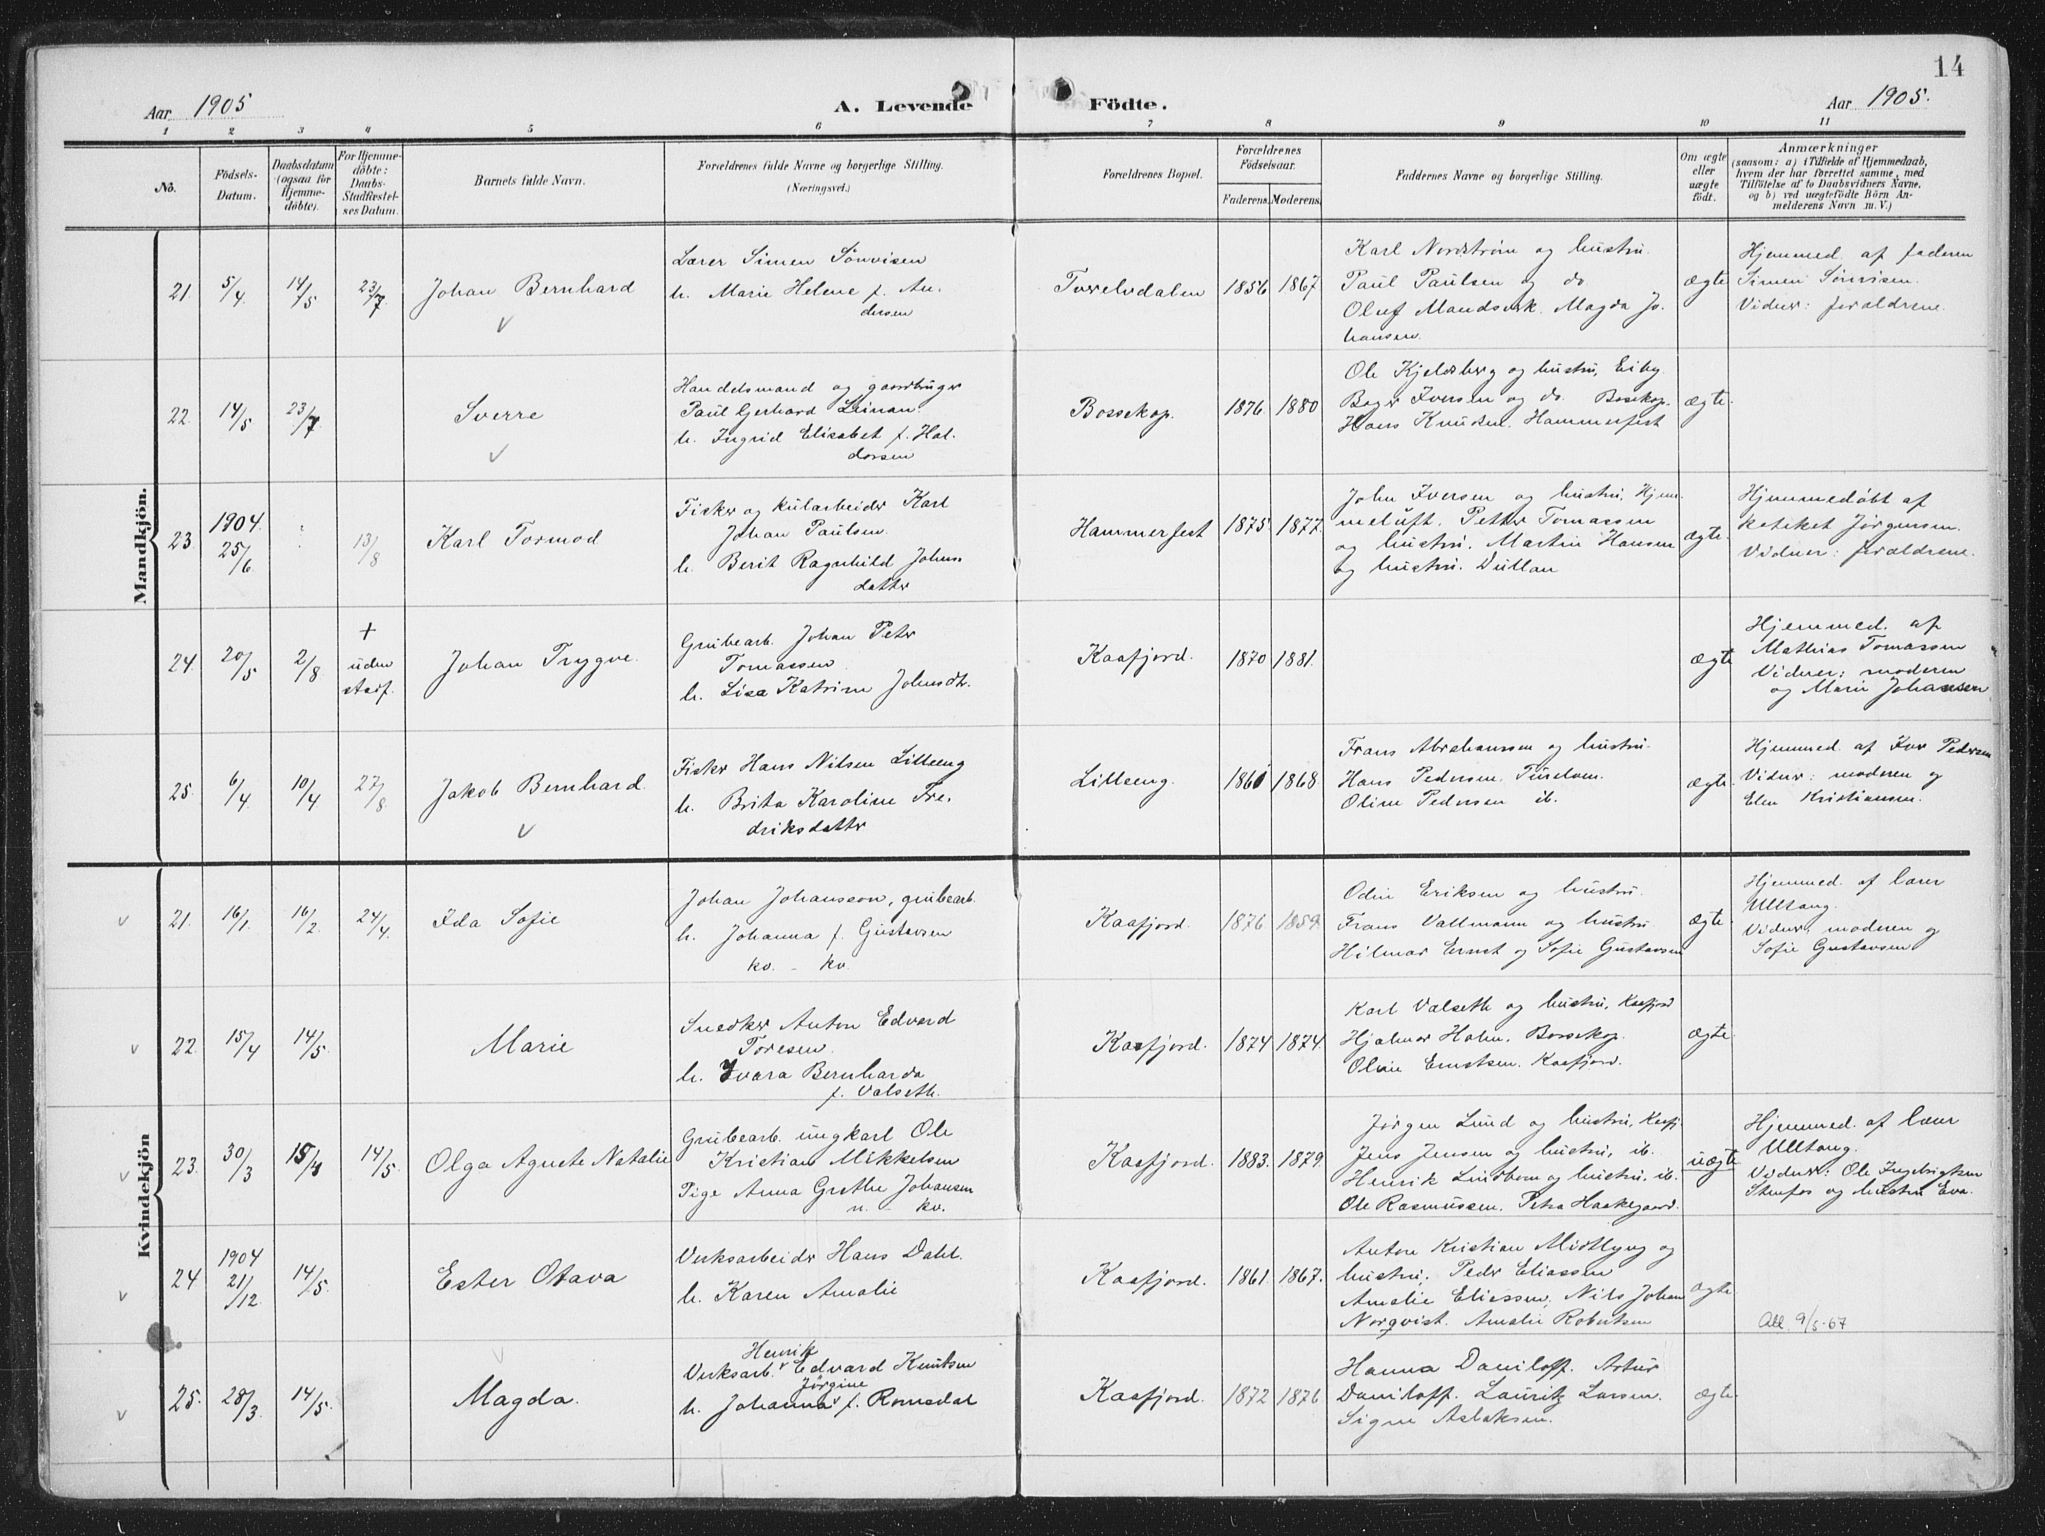 14
Aar 1905
A. Levende Födte.
Aar 1905.
1 2 3 4 5 6 7 8 9 10 11
No.
Födsels-
Datum.
Daabsdatum
(ogsaa for
Hjemme-
döbte).
For Hjemme-
döbte:
Daabs-
Stadfæstel-
ses Datum.
Barnets fulde Navn.
Forældrenes fulde Navne og borgerlige Stilling.
(Næringsvei.)
Forældrenes Bopæl.
Forældrenes
Födselsaar.
Faderens. Moderens.
Faddernes Navne og borgerlige Stilling.
Om ægte
eller
uægte
födt.
Anmærkninger
(saasom: a) i Tilfælde af Hjemmedaab,
hvem der har forrettet samme, med
Tilföielse af to Daabsvidners Navne,
og b) ved uægtefödte Börn An-
melderens Navn m. V.)
Mandkjön.
21 5/4. 14/5 23/7 Johan Bernhard
Lærer Simen Sönvisen
h. Marie Helene f. An-
dersen
Tverelvdalen 1856 1867.
Karl Nordström og hustru.
Paul Paulsen og do
Oluf Mandsverk. Magda Jo-
hansen.
ægte
Hjemmed. af faderen
Simen Sönvisen.
Vidner: forældrene.
22. 14/5 23/7 Sverre
Handelsmand og gaardbruger
Paul Gerhard Leinan.
h. Ingrid Elisabet f. Hal-
dorsen
Bossekop. 1876. 1880
Ole Kjeldsberg og hustru, Eiby
Boger Iversen og do. Bossekop.
Hans Knudsen. Hammerfest
ægte.
23. 1904. 25/6 13/8 Karl Tormod
Fisker og kularbeider Karl
Johan Paulsen.
h. Berit Ragnhild Johns-
datter
Hammerfest 1875. 1877.
John Iversen og hustru, Hjem-
meluft. Petter Tomassen
og hustru. Martin Hansen
og hustru.
ægte.
Hjemmedöbt af
kateket Jörgensen.
Vidner: forældrene.
24. 20/5 2/8 + uden stadf. Johan Trygve.
Grubearb. Johan Peter
Tomassen.
h. Lisa Katrine Johnsdtr.
Kaafjord. 1870 1881.
ægte
Hjemmed. af
Mathias Tomassen
Vidner: moderen
og Marie Johansen
25. 6/4 10/4 27/8 Jakob Bernhard.
Fisker Hans Nilsen Lilleeng
h. Brita Karoline Fre-
driksdatter
Lilleeng. 1861 1868
Frans Abrahamsen og hustru.
Hans Pedersen.
Oline Pedersen ib.
ægte.
Hjemmed. af Iver Pedersen
Vidner: moderen og
Elen Kristiansen.
Kvindekjön
21. 16/1. 16/2 24/4. Ida Sofie
Johan Johansson, grubearb.
h. Johanna f. Gustavsen
kv. - kv.
Kaafjord. 1876 1859.
Odin Eriksen og hustru.
Frans Vallmann og hustru.
Hilmar Ernst og Sofie Gustavsen
ægte.
Hjemmed. af lærer
Ulltang.
Vidner: moderen og
Sofie Gustavsen
22. 15/4 14/5. Marie
Snedker Anton Edvard
Toresen.
h. Ivara Bernharda
f. Valseth.
Kaafjord. 1874 1874.
Karl Valseth og hustru, Kaafjord
Hjalmar Holm. Bossekop.
Oline Ernstsen. Kaafjord.
ægte.
23. 30/3 15/4 14/5. Olga Agnete Natalie
Grubearb. ungkarl Ole
Kristian Mikkelsen
Pige Anna Grethe Johansen
n. - kv.
Kaafjord. 1883. 1879.
Jörgen Lund og hustru, Kaafj.
Jens Jensen og hustru, ib.
Henrik Lindbom og hustru, ib.
Ole Rasmussen. Petra Haakegaard.
uægte
Hjemmed. af lærer
Ulltang.
Vidner: Ole Ingebrigtsen
Stenfos og hustru Eva.
24 1904 21/12. 14/5. Ester Otava
Verksarbeider Hans Dahl.
h. Karen Amalie
Kaafjord. 1861. 1867.
Anton Kristian Midtlyng og
hustru, Peder Eliassen
Amalie Eliassen, Nils Johan
Norqvist. Amalie Robertsen
ægte
Att. 9/5-67
25. 28/3 14/5. Magda.
Henrik
Verksarb. Edvard Knutsen
Jörgine
h. Johanna f. Romsdal
Kaafjord. 1872 1876
Hanna Daniloff. Artur
Daniloff. Lauritz Larsen.
Signe Aslaksen.
ægte.